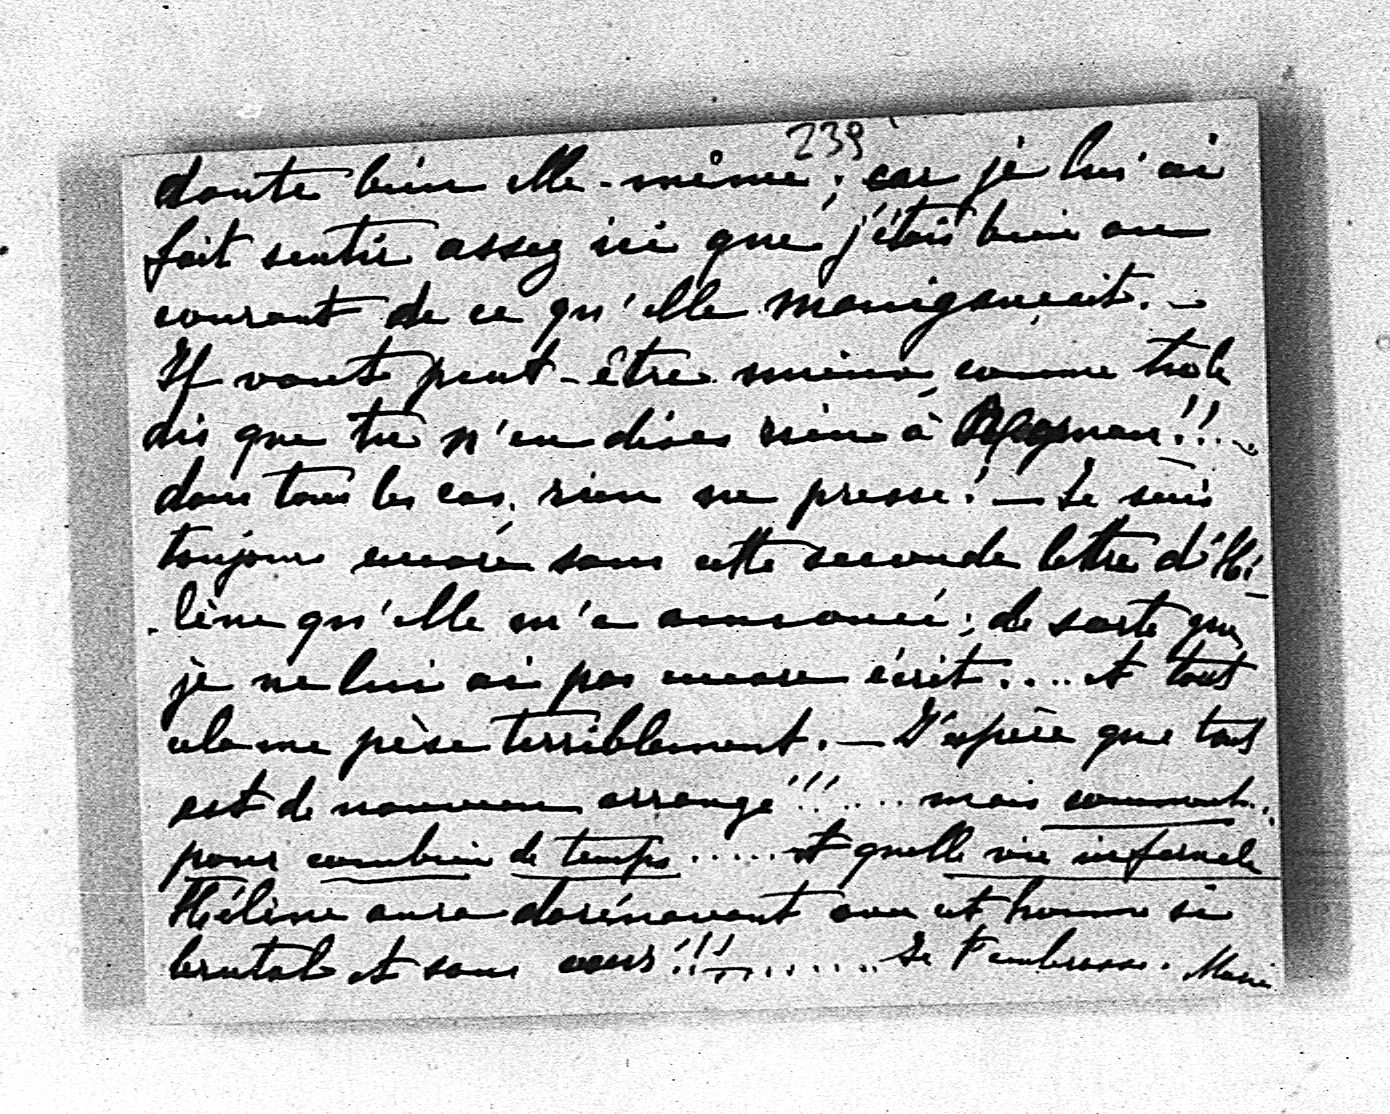 239
doute bien elle-même; car je lui ai
fait sentir assez ici que j'étais bien au
courant de ce qu'elle manigançait. —
Il vaut peut-être mieux comme tu le
dis que tu n'en dises rien à !!..
dans tous les cas, rien ne presse! — Je suis
toujours encore sans cette seconde lettre d'Hé-
lène qu'elle m'a annoncée; de sorte que
je ne lui ai pas encore écrit.... et tout
cela me pèse terriblement. — J'espère que tout
est de nouveau arrangé!!!.... mais comment..
pour combien de temps..... et quelle vie infernale
Hélène aura dorénavant avec cet homme si
brutal et sans cœur!!!....... Je t'embrasse. Marie